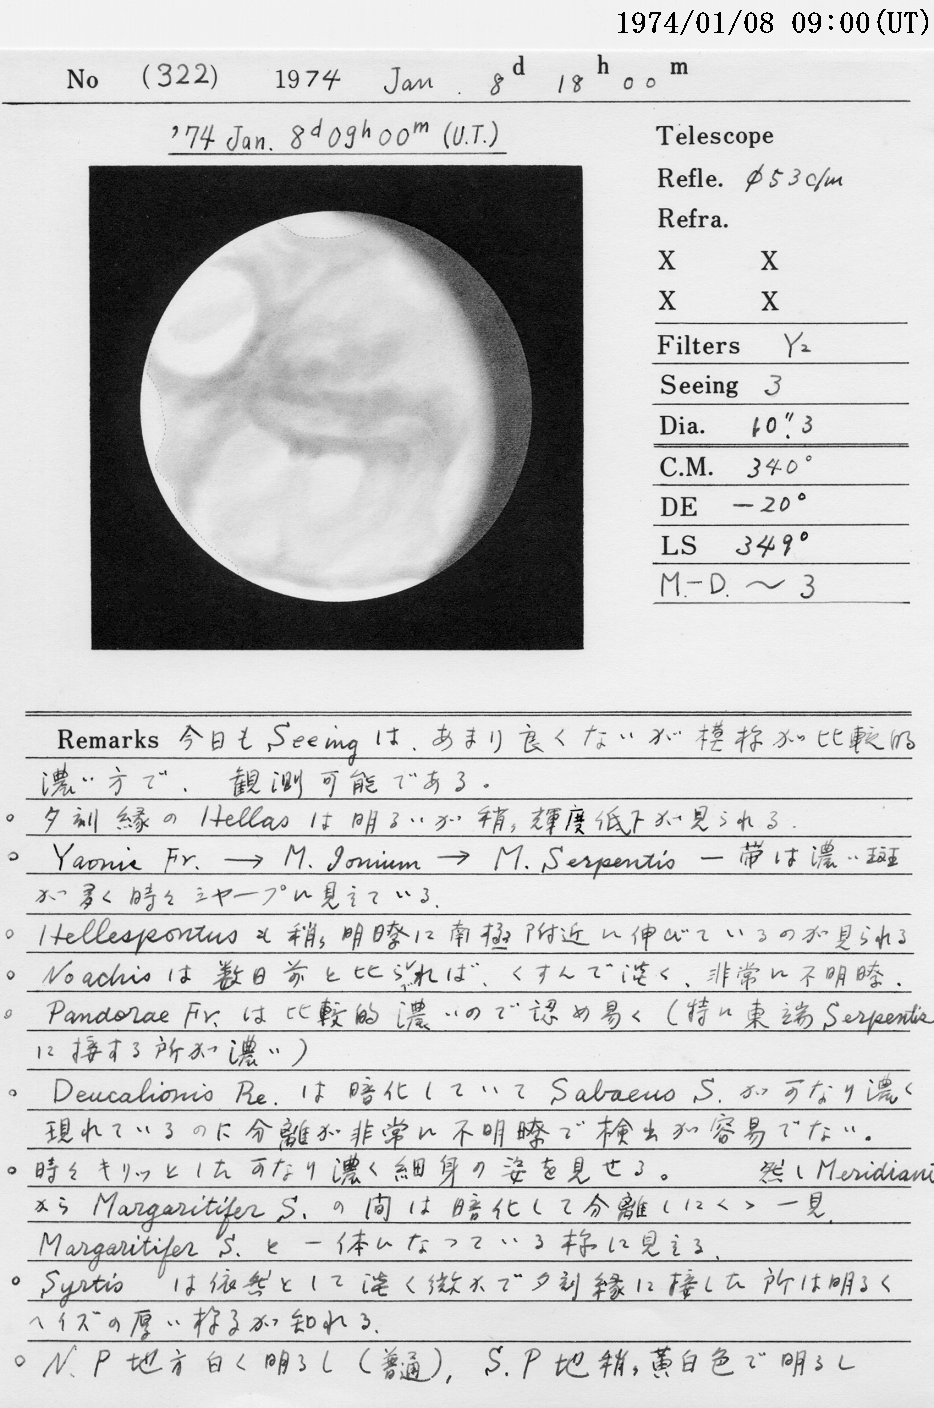 1974/01/08 09:00(UT)
No (322) 1974 Jan. 8d 18h 00m
'74 Jan. 8d 09h 00m (U.T.)
Telescope
Refle. φ53c/m
Refra.
X X
X X
Filters Y2
Seeing 3
Dia. 10".3
C.M. 340°
DE -20°
LS 349°
M.-D. ~ 3
Remarks 今日も Seeing は、あまり良くないが模様が比較的
濃い方で、観測可能である。
○ 夕刻縁の Hellas は明るいが稍々輝度低下が見られる.
○ Yaonis Fr. → M. Ionium → M. Serpentis 一帯は濃い斑
が多く時々シャープに見えている.
○ Hellespontus も稍々明瞭に南極附近に伸びているのが見られる
○ Noachis は数日前と比られば、くすんで淡く、非常に不明瞭.
○ Pandorae Fr. は比較的濃いので認め易く (特に東端 Serpentis
に接する所が濃い)
○ Deucalionis Re. は暗化していて Sabaeus S. が可なり濃く
現れているのに分離が非常に不明瞭で検出が容易でない。
○ 時々キリッとした可なり濃く細身の姿を見せる。 然し Meridiani
から Margaritifer S. の間は暗化して分離しにくゝ一見、
Margaritifer S. と一体になっている様に見える.
○ Syrtis は依然として淡く微かで夕刻縁に接した所は明るく
ヘイズの厚い様子が知れる.
○ N.P 地方白く明るし (普通), S.P 地稍々黄白色で明るし